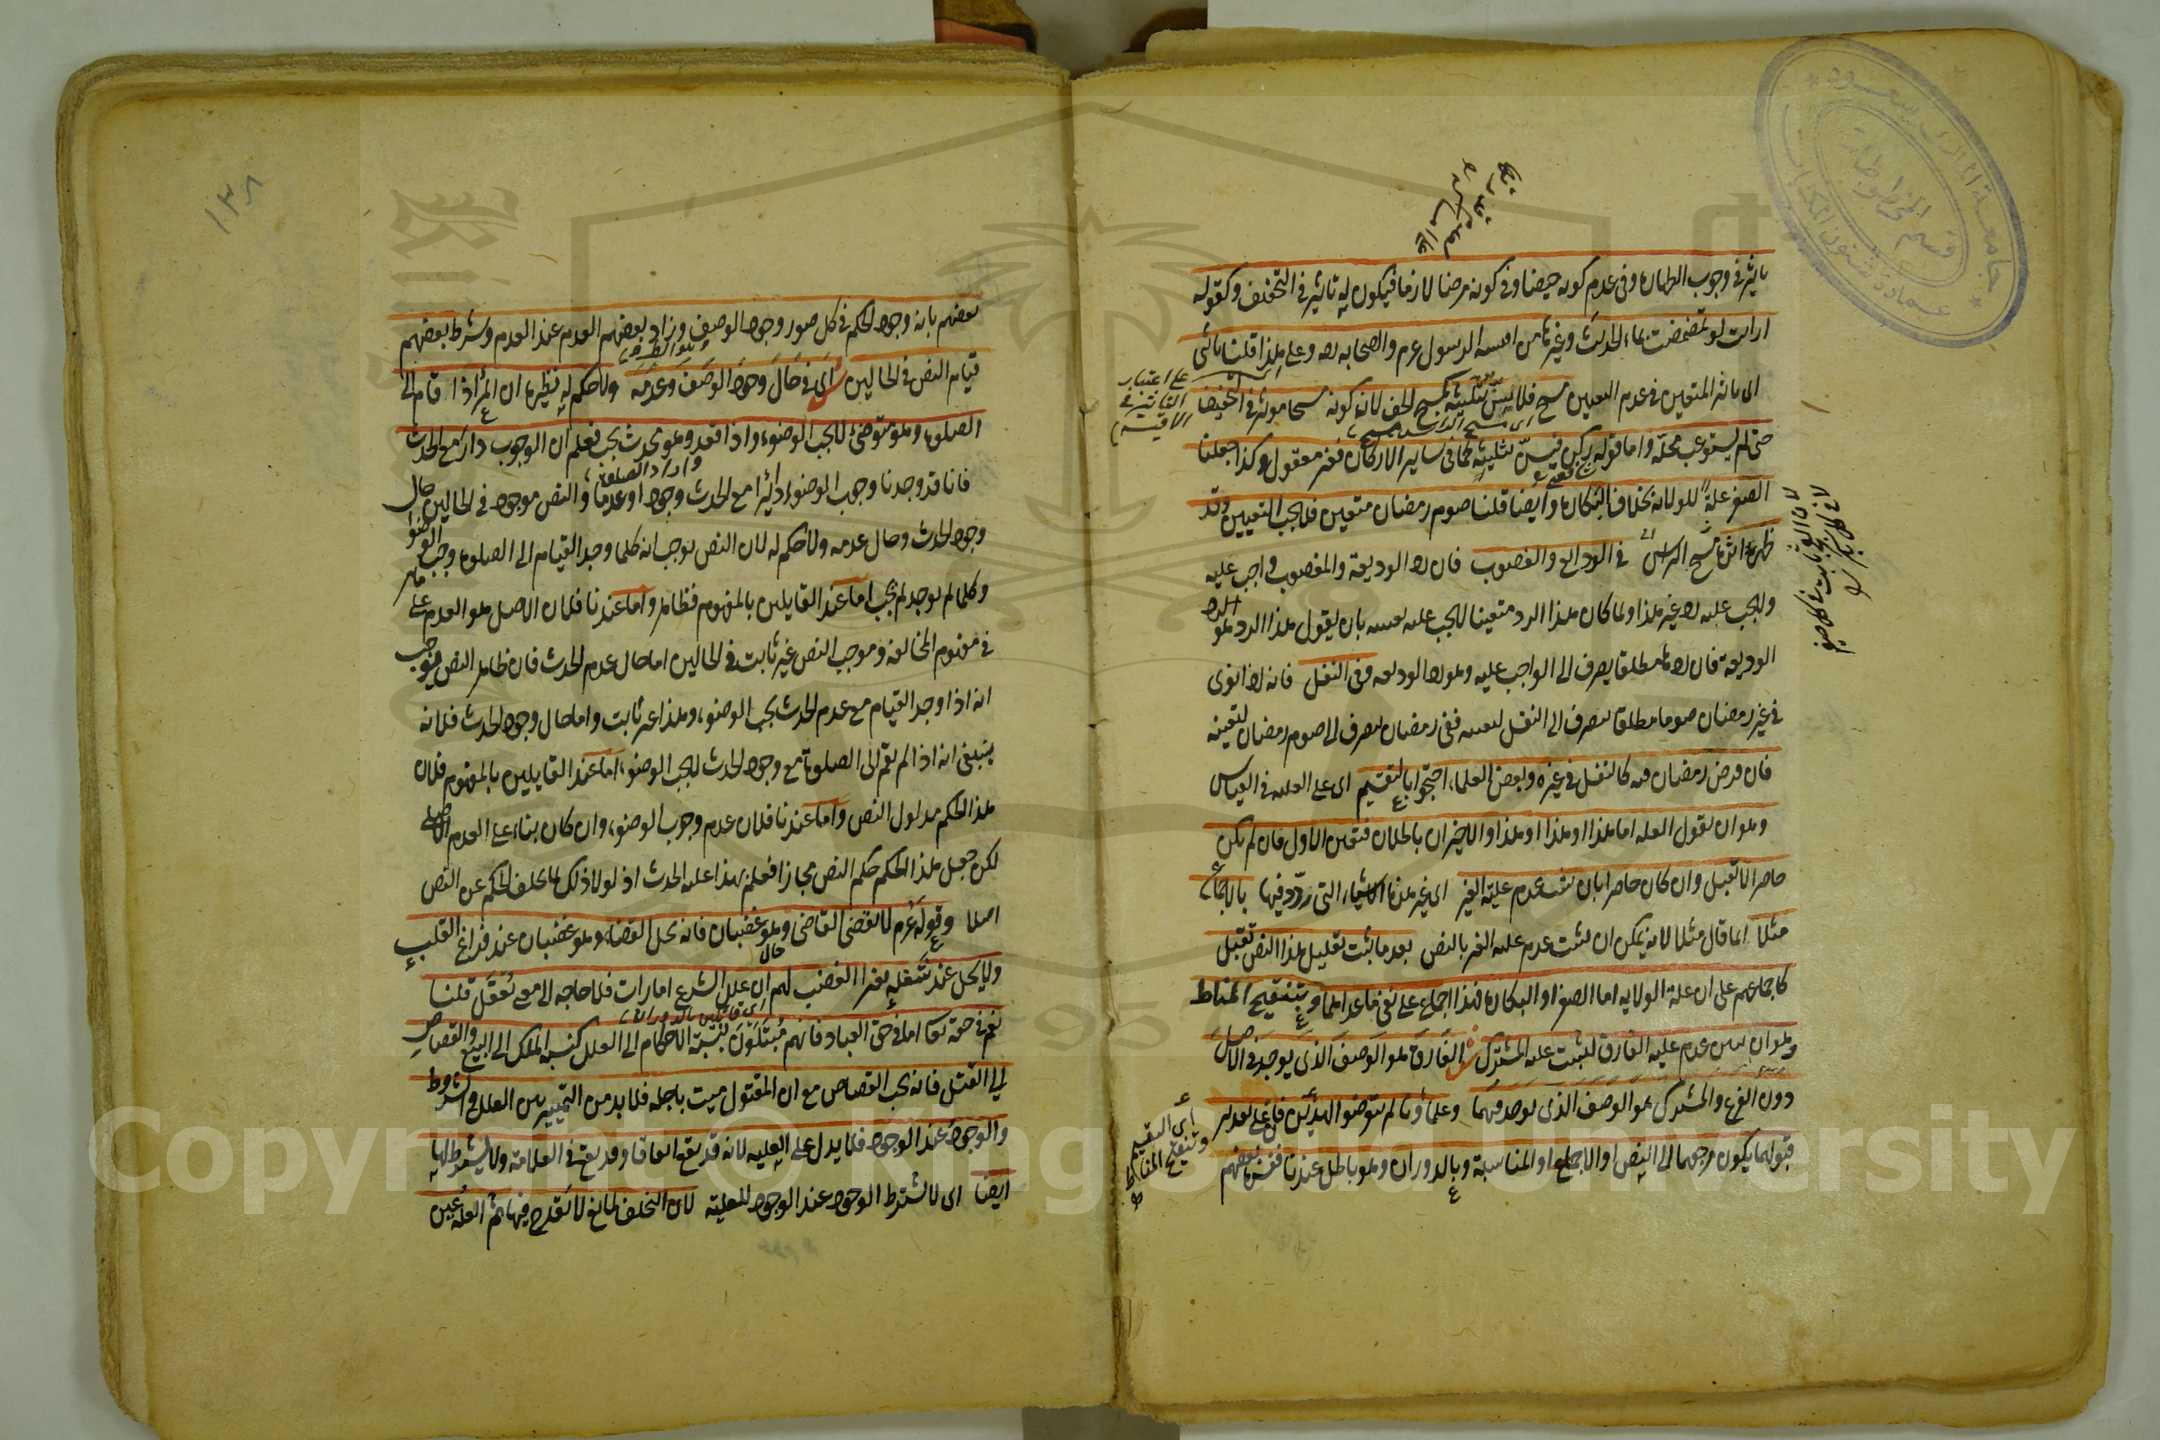 تاثير في وجوب الطهارة وفي عدم كونه حيضا وفي كونه مرضا لازما فيكون له تاثير في التخفيف وكقوله
ارايت لو تمضمضت بماء الحديث وغيرهما من اقيسة الرسول عم والصحابة رضه وعلى هذا قلنا
الى ما تاثير المتعين في عدم التعيين مسح فلا يسن تثليثه كمسح الخف لان كونه مسحا مؤثر في التخفيف
حتى لم يستوعب محله واما قوله ركن فيسن تثليثه كما في سائر الاركان فغير معقول وكذا جعلنا
الصغر علة للولاية بخلاف البكارة وايضا قلنا صوم رمضان متعين فلا يجب التعيين وقد
ظهر اثرها في الودائع والغصوب فان رد الوديعة والمغصوب واجب عليه
ولا يجب عليه رد غير هذا ولما كان هذا الرد متعينا لا يجب عليه تعيينه بان يقول هذا الرد هو رد
الوديعة فان رد مطلقا يصرف الى الواجب عليه وهو رد الوديعة وفي النفل فانه اذا نوى
في غير رمضان صوما مطلقا يصرف الى النفل لتعينه ففي رمضان يصرف الى صوم رمضان لتعينه
فان فرض رمضان فيه كالنفل في غيره وبعض العلماء احتجوا بالتقسيم اى على العلية في القياس
وهو ان يقول العلة اما هذا او هذا او هذا والاخيران باطلان فتعين الاول فان لم يكن
حاصرا لا تقبل وان كان حاصرا بان يثبت عدم علية الغير اى غير هذه الاشياء التي ردد فيها بالاجماع
مثلا انما قال مثلا لانه يمكن ان يثبت عدم علية الغير بالنص بعد ما ثبت تعليل هذا النص تقبل
كاجماعهم على ان علة الولاية اما الصغر او البكارة فهذا اجماع على نفي ما عداهما وبتنقيح المناط
وهو ان يبين عدم علية الفارق ليثبت علية المشترك الفارق هو الوصف الذي يوجد في الاصل
دون الفرع والمشترك هو الوصف الذي يوجد فيهما وعلماؤنا لم يتعرضوا لهذين فان على تقدير
قبولهما يكون مرجعهما الى النص او الاجماع او المناسبة وبالدوران وهو باطل عندنا ففسره بعضهم
على اعتبار
التاثير في
الاقيسة
اى التقسيم
وتنقيح المناط
١٣٨
بعضهم بانه وجود الحكم في كل صور وجود الوصف وزاد بعضهم العدم عند العدم وشرط بعضهم
قيام النص في الحالين اى في حال وجود الوصف وعدمه ولا حكم له نظيره ان المرء اذا قام الى
الصلوة وهو متوضئ لا يجب الوضوء واذا قعد وهو محدث يجب فعلم ان الوجوب دار مع الحدث
فانا قد وجدنا وجوب الوضوء دائرا مع الحدث وجودا وعدما والنص موجود في الحالين حال
وجود الحدث وحال عدمه ولا حكم له لان النص يوجب انه كلما وجد القيام الى الصلوة وجب الوضوء
وكلما لم يوجد لم يجب اما عند القايلين بالمفهوم فظاهر واما عندنا فلان الاصل هو العدم على ما مر
في مفهوم المخالفة وموجب النص غير ثابت في الحالين اما حال عدم الحدث فان ظاهر النص يوجب
انه اذا وجد القيام مع عدم الحدث يجب الوضوء وهذا غير ثابت واما حال وجود الحدث فلانه
ينبغي انه اذا لم يقم الى الصلوة مع وجود الحدث لا يجب الوضوء اما عند القايلين بالمفهوم فلان
هذا الحكم مدلول النص واما عندنا فلان عدم وجوب الوضوء وان كان بناء على العدم الاصلي
لكن جعل هذا الحكم حكم النص مجازا فعلم بهذا علية الحدث اذ لولا ذلك لما تخلف الحكم عن النص
اصلا وقوله عم لا يقضي القاضي وهو غضبان فانه يحل القضاء وهو غضبان عند فراغ القلب
ولا يحل عند شغله بغير الغضب لهم ان علل الشرع امارات فلا حاجة الى معنى تعقل قلنا
نعم في حقه تعا اما في حق العباد فانهم مبتلون بنسبة الاحكام الى العلل كنسبة الملك الى البيع والقصاص
الى القتل فانه يجب القصاص مع ان المقتول ميت باجله فلا بد من التمييز بين العلل والشروط
والوجود عند الوجود فلا يدل على العلية لانه قد يقع اتفاقا وقد يقع في العلامة ولا يشترط لها
ايضا اى لا يشترط الوجود عند الوجود للعلية لان التخلف لمانع لا يقدح فيها ثم العلة عين